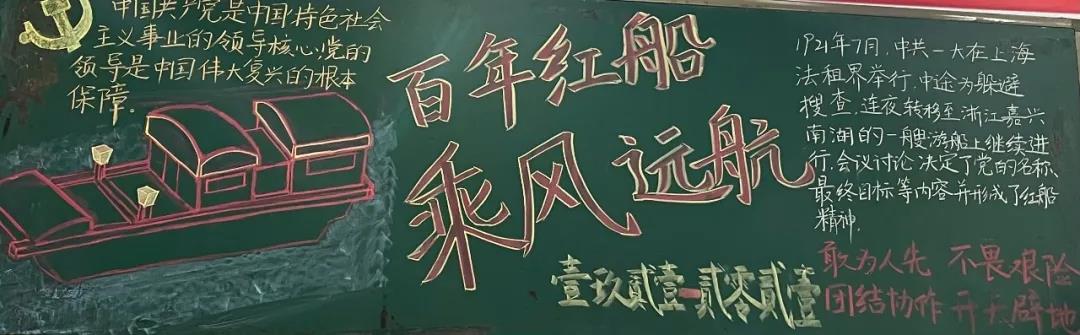 中国共产党是中国特色社会
主义事业的领导核心,党的
领导是中国伟大复兴的根本
保障.
百年红船
乘风远航
壹玖贰壹-贰零贰壹
1921年7月,中共一大在上海
法租界举行,中途为躲避
搜查,连夜转移至浙江嘉兴
南湖的一艘游船上继续进
行,会议讨论决定了党的名称、
最终目标等内容并形成了红船
精神.
敢为人先 不畏艰险
团结协作 开天辟地